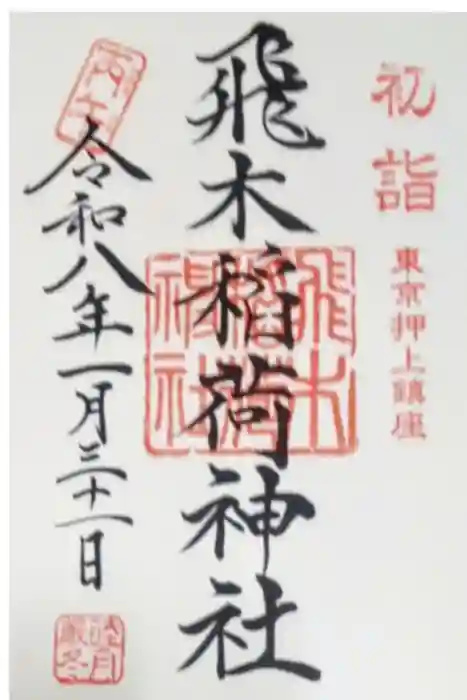 初詣
東京押上鎮座
飛木稲荷神社
飛木稲荷神社
丙午
令和八年一月三十一日